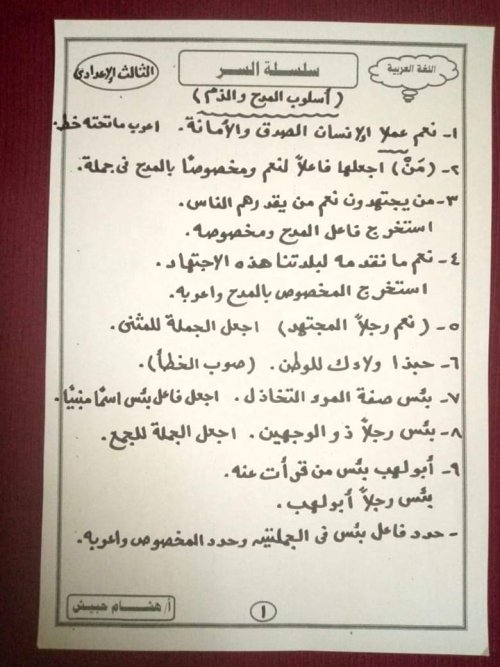 اللغة العربية
سلسلة السر
الثالث الإعدادى
( أسلوب المدح والذم )
١- نعم عملا الإنسان الصدق والأمانة. اعرب ما تحته خط.
٢- (مَنْ) اجعلها فاعلاً لنعم ومخصوصًا بالمدح فى جملة.
٣- من يجتهدون نعم من يقدرهم الناس.
استخرج فاعل المدح ومخصوصه.
٤- نعم ما نقدمه لبلدتنا هذه الاجتهاد.
استخرج المخصوص بالمدح واعربه.
٥- ( نعم رجلاً المجتهد ) اجعل الجملة للمثنى.
٦- حبذا ولاءك للوطن. (صوب الخطأ).
٧- بئس صفة المرء التخاذل. اجعل فاعل بئس اسمًا مبنيًا.
٨- بئس رجلاً ذو الوجهين. اجعل الجملة للجمع.
٩- أبو لهب بئس من قرأت عنه.
بئس رجلاً أبو لهب.
- حدد فاعل بئس فى الجملتين وحدد المخصوص واعربه.
أ/ هشام حبيش
١